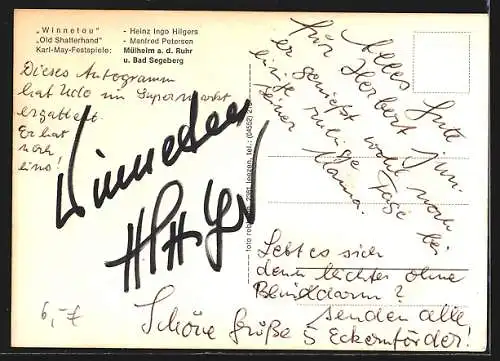 „Winnetou" - Heinz Ingo Hilgers
„Old Shatterhand" - Manfred Petersen
Karl-May-Festspiele: Mülheim a. d. Ruhr
u. Bad Segeberg
Dieses Autogramm
hat Udo im Supermarkt
ergattert.
Er hat
noch
eins!
Winnetou
6,-€
foto tel.: (04552)
Alles Gute
für Herbert jun.
er genießt wohl noch
einige ruhige Tage bei
seiner
Mama.
Lebt es sich
denn leichter ohne
Blinddarm?
Schöne Grüße senden alle
5 Eckernförder!